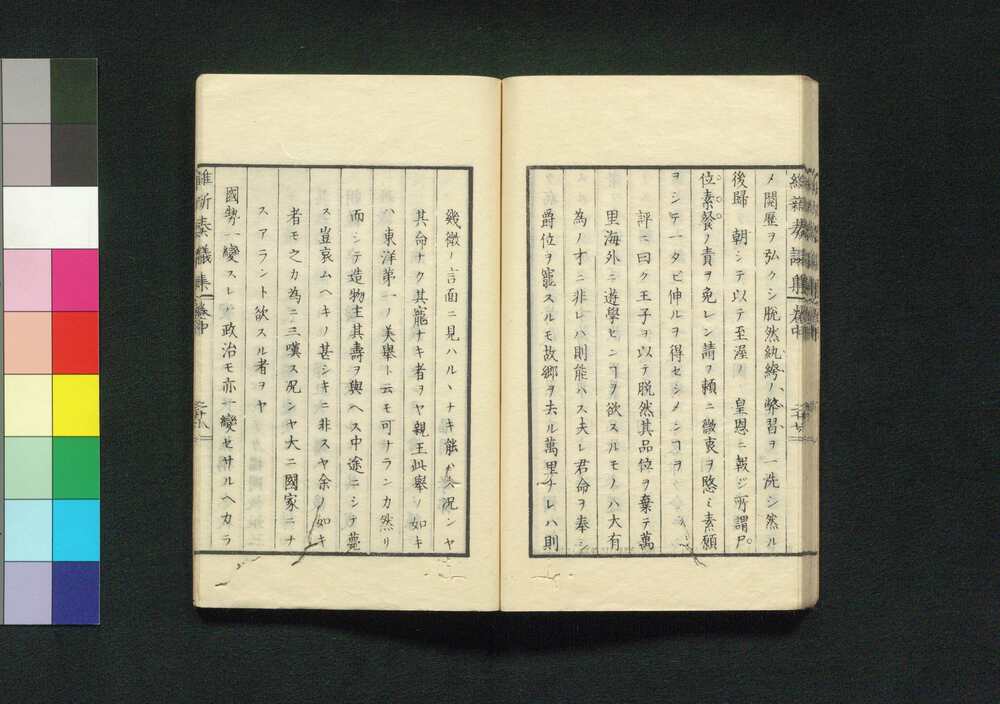 メ閲歴ヲ弘クシ脱然紈綺ノ弊習ヲ一洗シ然ル
後歸 朝シテ以テ至渥ノ 皇恩ニ報ジ所謂尸
位素餐ノ責ヲ免レン請ヲ頼ニ微衷ヲ愍ミ素願
ヲシテ一タビ伸ルヲ得セシメンヿヲ
評ニ曰ク王子ヲ以テ脱然其品位ヲ棄テ萬
里海外ニ遊學センヿヲ欲スルモノハ大有
為ノ才ニ非レハ則能ハス夫レ君命ヲ奉シ
爵位ヲ寵スルモ故郷ヲ去ル萬里ナレハ則
幾微ノ言面ニ見ハルヽナキ能ハス况ンヤ
其命ナク其寵ナキ者ヲヤ親王此舉ノ如キ
ハ東洋第一ノ美舉ト云モ可ナランカ然リ
而シテ造物主其壽ヲ與ヘス中途ニシテ薨
ス豈哀ムヘキノ甚シキニ非スヤ余ノ如キ
者モ之カ為ニ三嘆ス况ンヤ大ニ國家ニナ
スアラント欲スル者ヲヤ
國勢一變スレハ政治モ亦一變セサルヘカラ
奏議集 卷中